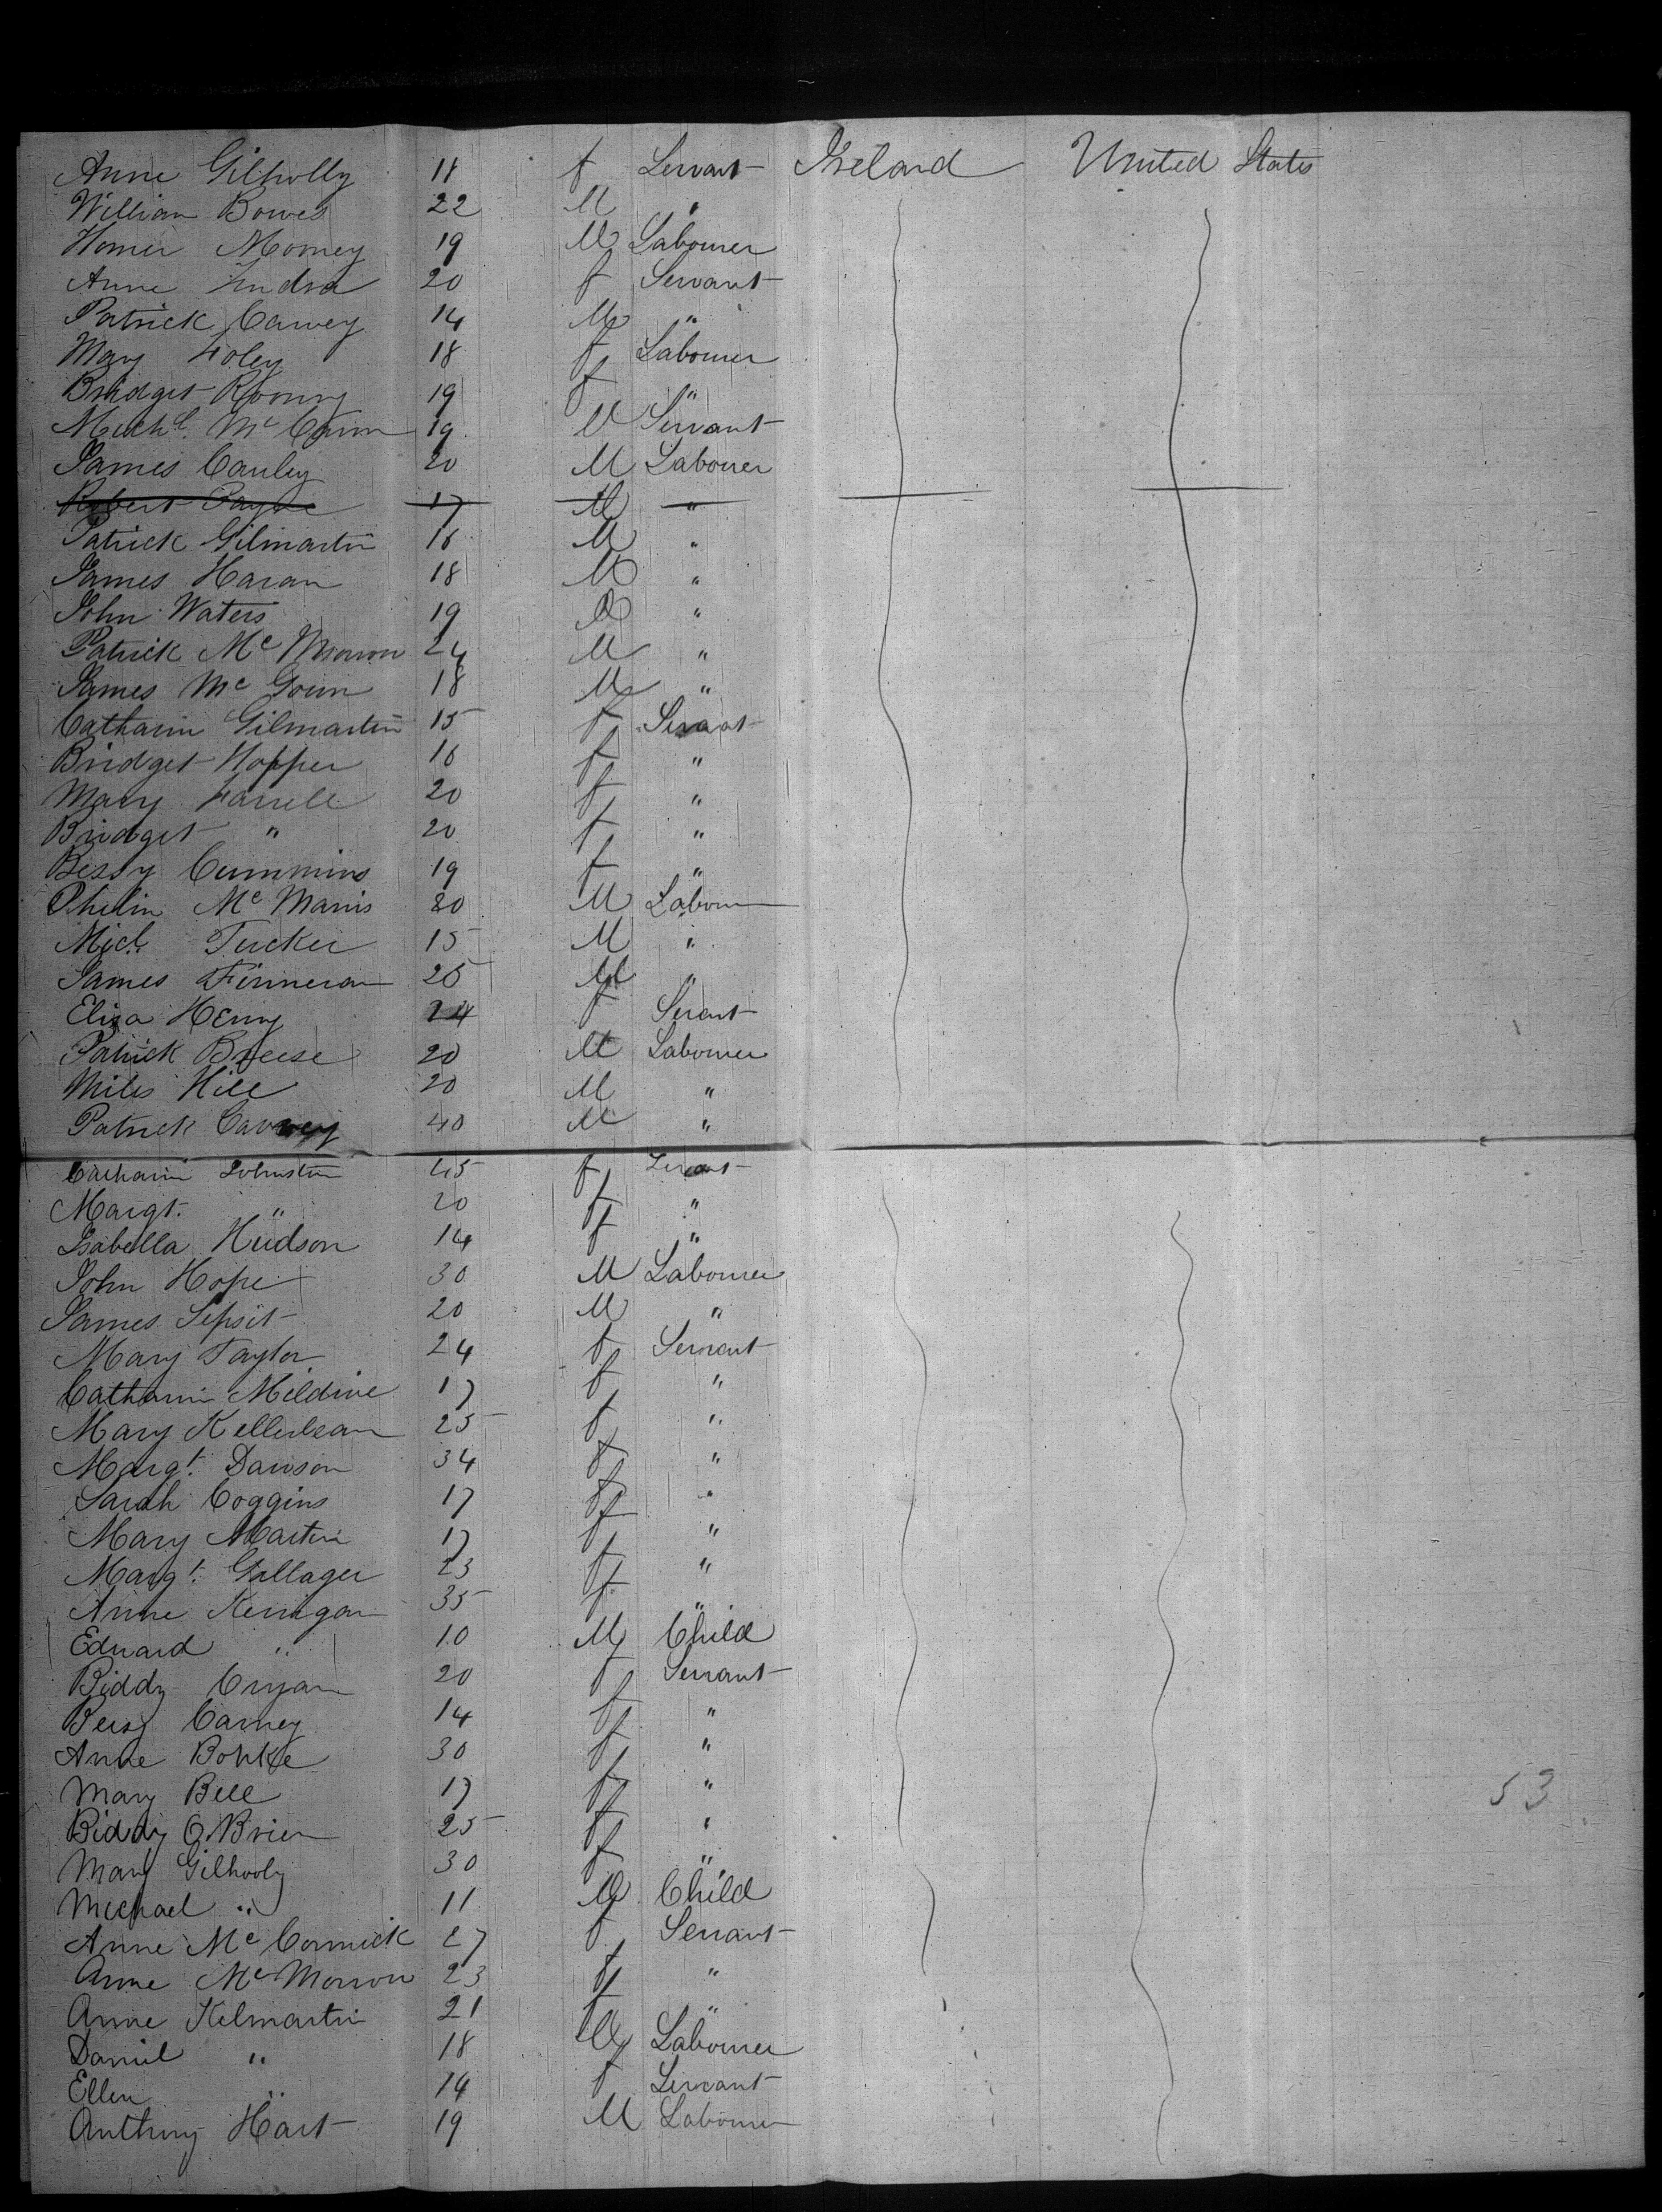 Anne Gilholly 18 f Servant Ireland United States
William Bowes 22 M "
Homer Mooney 19 M Labourer
Anne 20 f Servant
Patrick Carvey 14 M "
Mary Foley 18 f Labourer
Bridget Roony 19 f "
Michl. Mc 19 M Servant
James Cauley 20 M Labourer
Robert Payne 17 M "
Patrick Gilmartin 16 M "
James Haran 18 M "
John Waters 19 M "
Patrick Mc Morrow 24 M "
James Mc Gowin 18 M "
Catharin Gilmartin 15 f Servant
Bridget Hopper 16 f "
Mary Farrell 20 f "
Bridget " 20 f "
Bessy Cummins 19 f "
Phelim Mc Manis 20 M Labourer
Michl. Tucker 15 M "
James Finneran 25 M "
Eliza Henry 24 f Servant
Patrick Breese 20 M Labourer
Miles Hill 20 M "
Patrick 40 M "
Catharin Johnston 45 f Servant
Margt. " 20 f "
Isabella Hudson 14 f "
John Hope 30 M Labourer
James 20 M "
Mary Taylor 24 f Servant
Catharin 17 f "
Mary 25 f "
Margt. Dawson 34 f "
Sarah Coggins 17 f "
Mary Martin 17 f "
Margt. Gallager 23 f "
Anne Kerrigan 35 f "
Edward " 10 M Child
Biddy Cryan 20 f Servant
Carney 14 f "
Anne 30 f "
Mary Bell 17 f "
Biddy O'Brien 25 f "
Mary Gilhooly 30 f "
Michael " 11 M Child
Anne Mc Cormick 27 f Servant
Anne Mc Morrow 23 f "
Anne Kilmartin 21 f "
Daniel " 18 M Labourer
Ellen " 14 f Servant
Anthony Hart 19 M Labourer
53